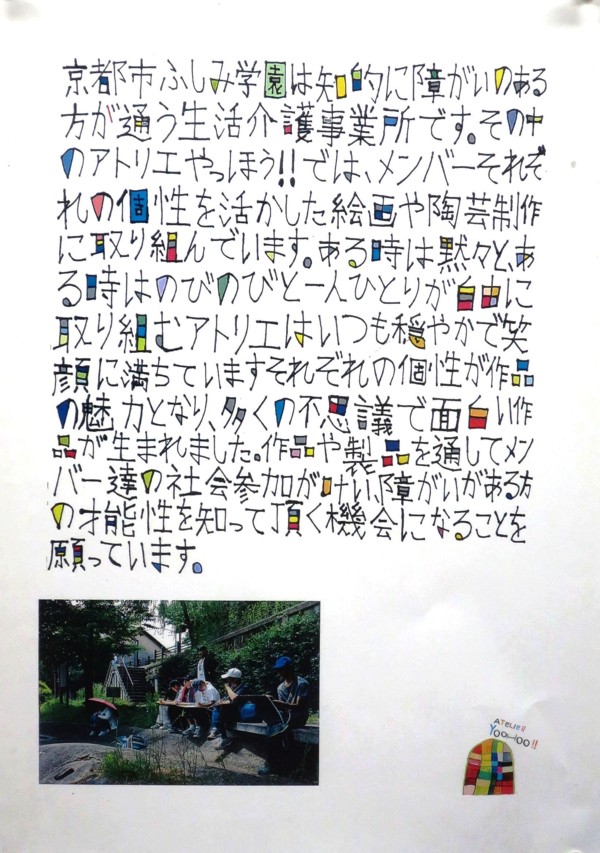 京都市ふしみ学園は知的に障がいのある
方が通う生活介護事業所です。その中
のアトリエやっほう!!では、メンバーそれぞ
れの個性を活かした絵画や陶芸制作
に取り組んでいます。ある時は黙々と、あ
る時はのびのびと一人ひとりが自由に
取り組むアトリエはいつも穏やかで笑
顔に満ちていますそれぞれの個性が作品
の魅力となり、多くの不思議で面白い作
品が生まれました。作品や製品を通してメン
バー達の社会参加がけい、障がいがある方
の才能性を知って頂く機会になることを
願っています。
ATELIER
YOOHOO!!